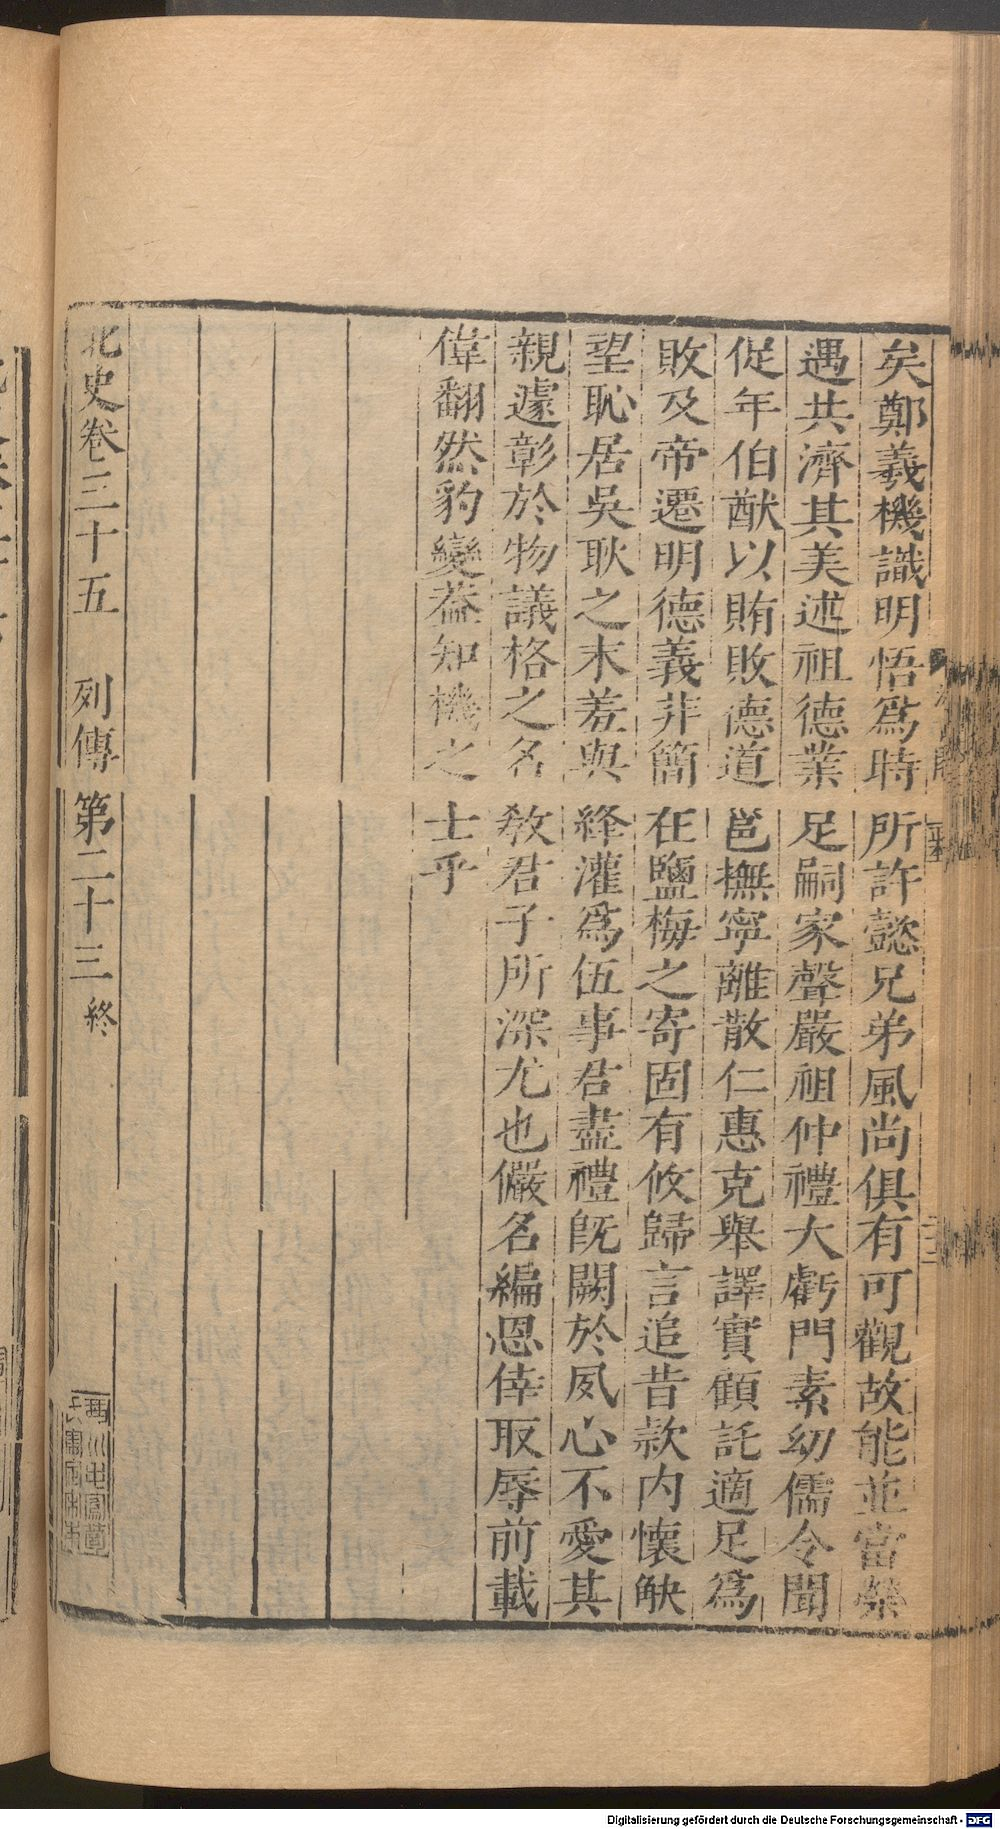 矣鄭羲機識明悟爲時所許懿兄弟風尚俱有可觀故能並當榮
遇共濟其美述祖德業足嗣家聲嚴祖仲禮大虧門素幼儒令聞
促年伯猷以賄敗德道邕撫寧離散仁惠克舉譯實顧託適足爲
敗及帝遷明德義非簡在鹽梅之寄固有攸歸言追昔款内懷觖
望恥居吳耿之末羞與絳灌爲伍事君盡禮旣闕於夙心不愛其
親遽彰於物議格之名敎君子所深尤也儼名編恩倖取辱前載
偉翻然豹變蓋知機之士乎
北史卷三十五 列傳第二十三 終
Digitalisierung gefördert durch die Deutsche Forschungsgemeinschaft - DFG